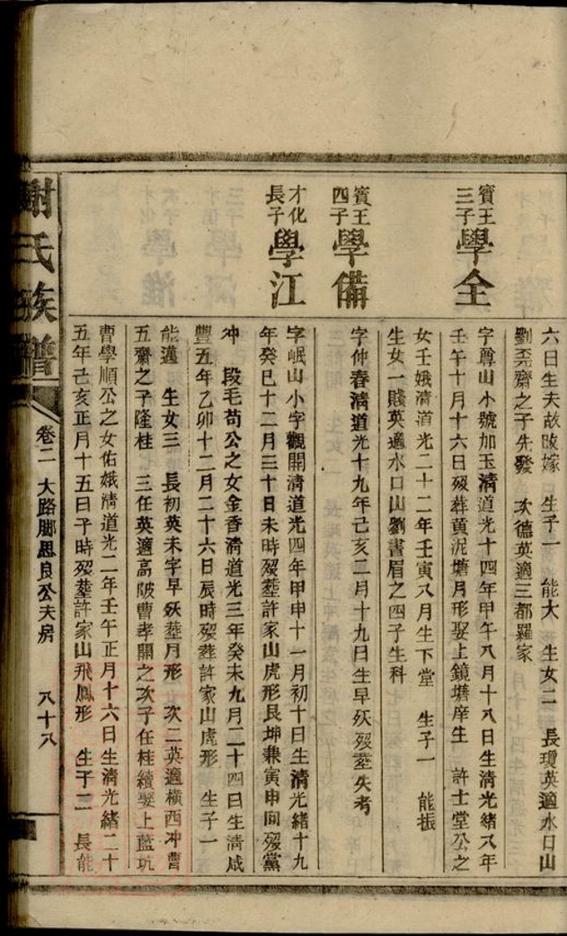 六日生夫故改嫁 生子一 能大 生女二 長瓊英適水口山
劉堯齋之子先發 次德英適三都羅家
賓王三子 學全
字尊山小號加玉清道光十四年甲午八月十八日生清光緒八年
壬午十月十六日歿葬黄泥塘月形娶上鏡塘庠生 許士堂公之
女壬娥清道光二十二年壬寅八月生下堂 生子一 能振
生女一賤英適水口山劉書眉之四子生科
賓王四子 學備
字仲春清道光十九年己亥二月十九日生早殀歿塟失考
才化長子 學江
字岷山小字觀開清道光四年甲申十一月初十日生清光緒十九
年癸巳十二月三十日未時歿塟許家山虎形艮坤兼寅申同歿黨
冲 段毛苟公之女金香清道光三年癸未九月二十四日生清咸
豐五年乙卯十二月二十六日辰時歿塟許家山虎形 生子一
能邁 生女三 長初英未字早殀塟月形 次二英適橫西冲曹
五齋之子隆桂 三任英適高陂曹孝開之次子任桂續娶上藍坑
曹學順公之女佑娥清道光二年壬午正月十六日生清光緒二十
五年己亥正月十五日子時歿塟許家山飛鳳形 生子二 長能
謝氏族譜 卷二 大路脚思良公夫房 八十八